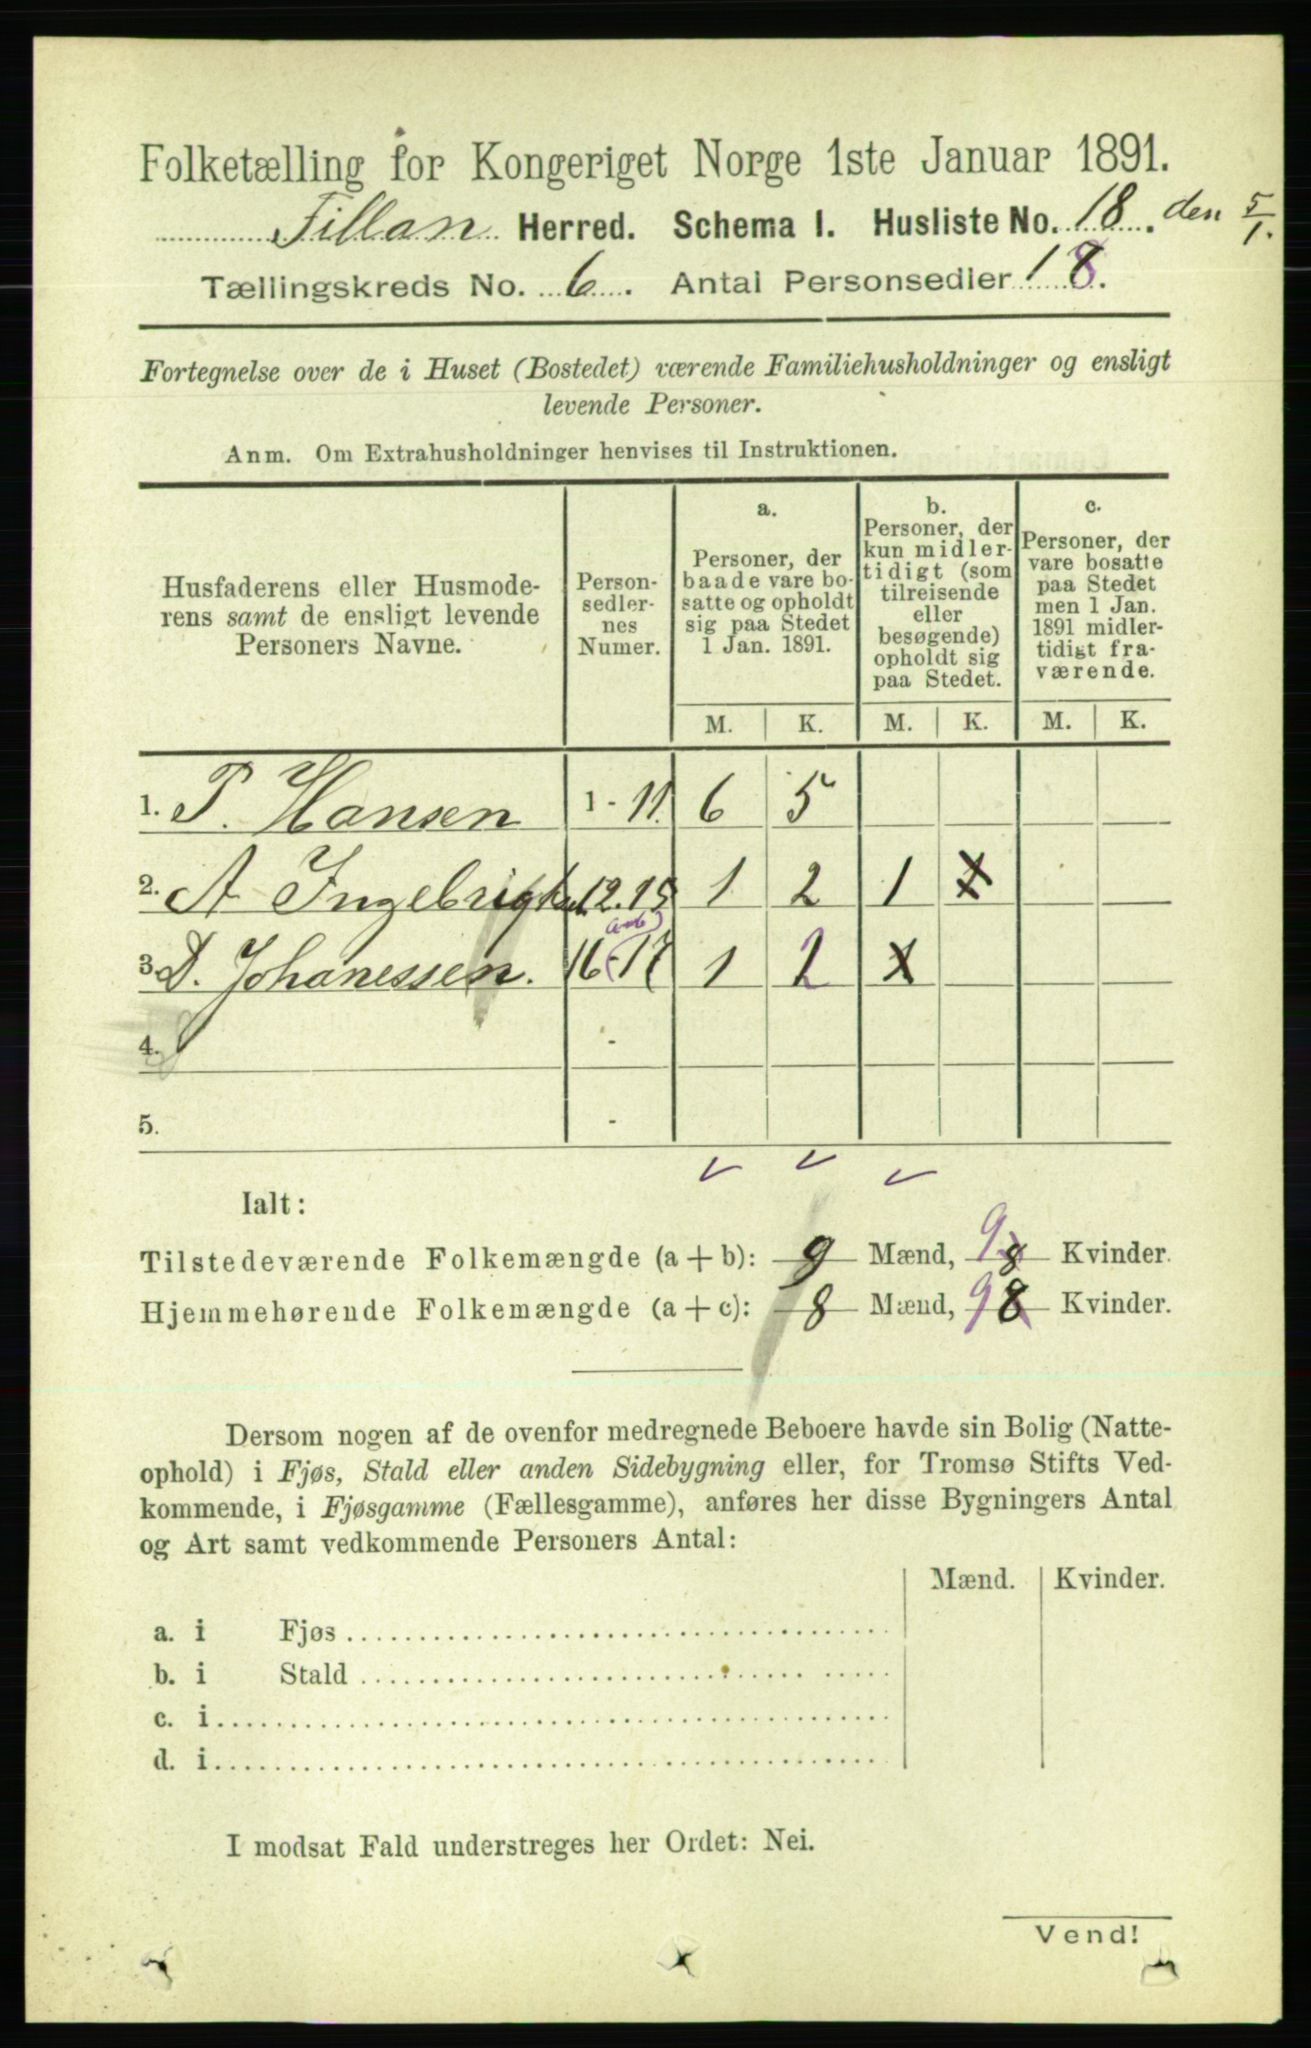 Folketælling for Kongeriget Norge 1ste Januar 1891.
Fillan Herred. Schema I. Husliste No. 18. den 5/1.
Tællingskreds No. 6. Antal Personsedler 18.
Fortegnelse over de i Huset (Bostedet) værende Familiehusholdninger og ensligt
levende Personer.
Anm. Om Extrahusholdninger henvises til Instruktionen.
Husfaderens eller Husmode-
rens samt de ensligt levende
Personers Navne.
Person-
sedler-
nes
Numer.
a.
Personer, der
baade vare bo-
satte og opholdt
sig paa Stedet
1 Jan. 1891.
b.
Personer, der
kun midler-
tidigt (som
tilreisende
eller
besøgende)
opholdt sig
paa Stedet.
c.
Personer, der
vare bosatte
paa Stedet
men 1 Jan.
1891 midler-
tidigt fra-
værende.
M. K. M. K. M. K.
1. P. Hansen 1 - 11. 6 5
2. A Ingebrigtsen 12.15 1 2 1
3 D. Johanessen. 16-17 1 2
4. -
5. -
Ialt:
Tilstedeværende Folkemængde (a + b): 9 Mænd, 9 8 Kvinder.
Hjemmehørende Folkemængde (a + c): 8 Mænd, 9 8 Kvinder.
Dersom nogen af de ovenfor medregnede Beboere havde sin Bolig (Natte-
ophold) i Fjøs, Stald eller anden Sidebygning eller, for Tromsø Stifts Ved-
kommende, i Fjøsgamme (Fællesgamme), anføres her disse Bygningers Antal
og Art samt vedkommende Personers Antal:
Mænd. Kvinder.
a. i Fjøs
b. i Stald
c. i
d. i
I modsat Fald understreges her Ordet: Nei.
Vend!